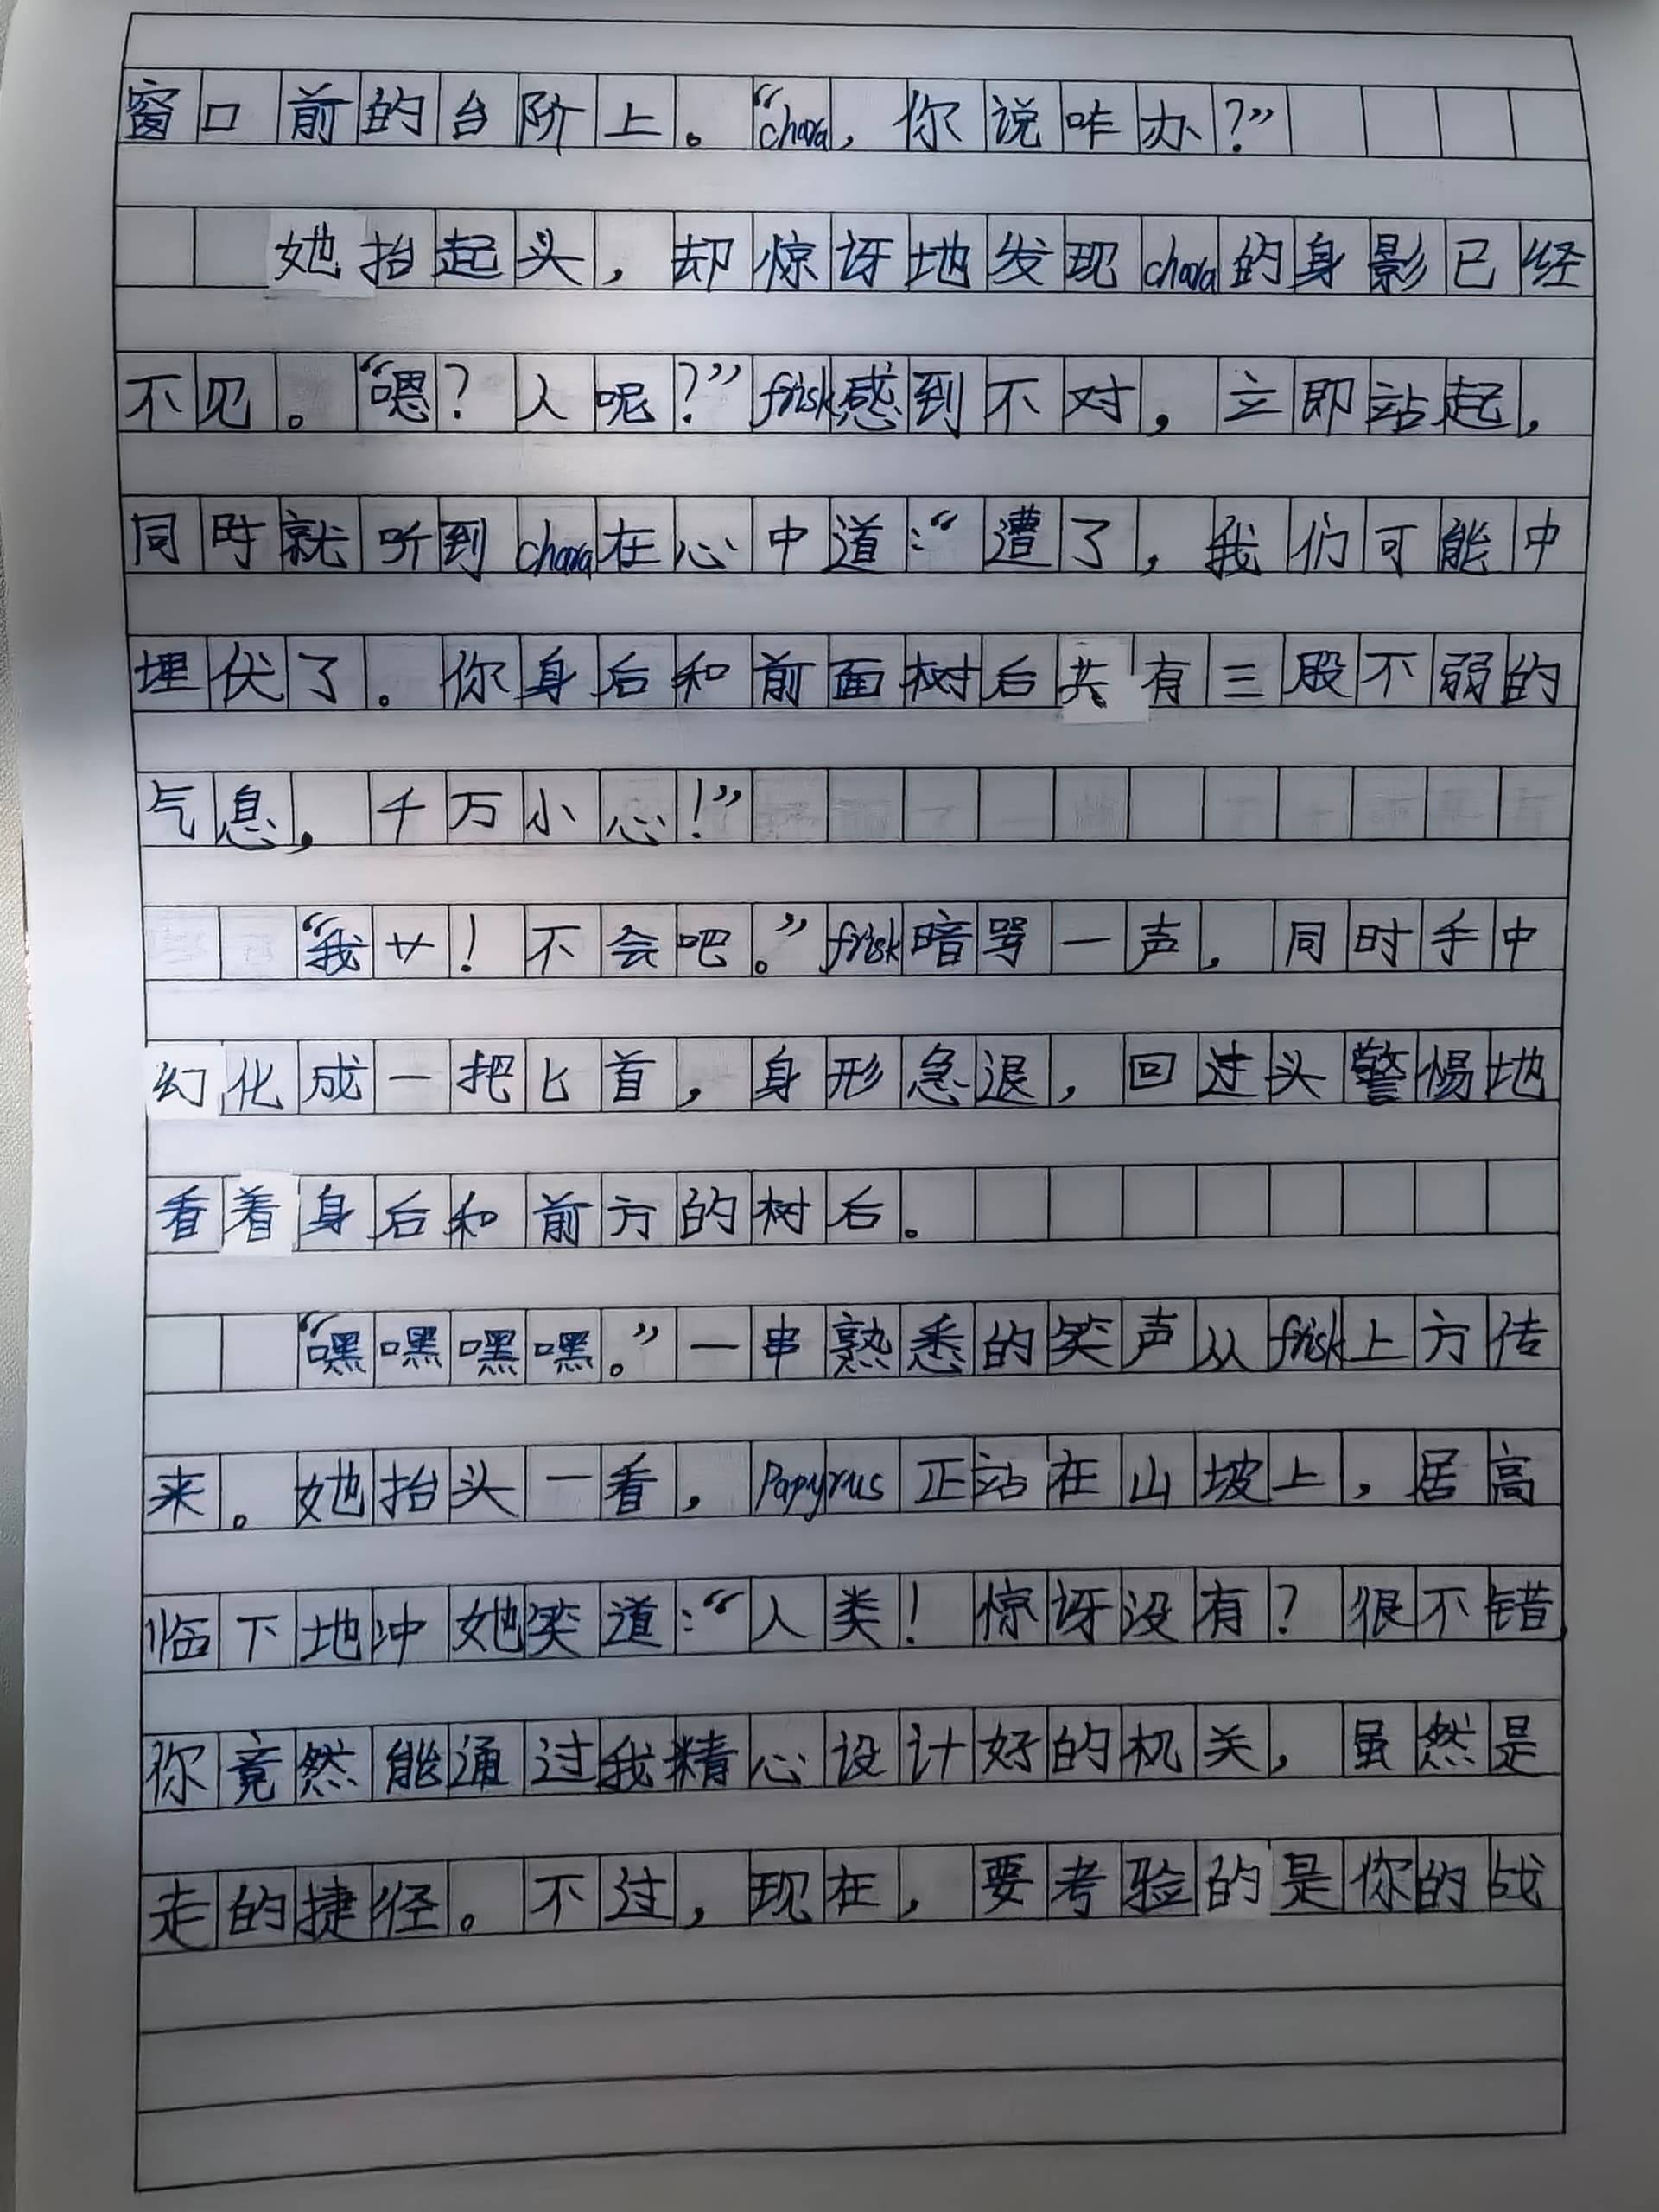 窗口前的台阶上。“chara，你说咋办？”
她抬起头，却惊讶地发现chara的身影已经
不见。“嗯？人呢？”frisk感到不对，立即站起，
同时就听到chara在心中道：“遭了，我们可能中
埋伏了。你身后和前面树后共有三股不弱的
气息，千万小心！”
“我艹！不会吧。”frisk暗骂一声，同时手中
幻化成一把匕首，身形急退，回过头警惕地
看着身后和前方的树后。
“嘿嘿嘿嘿。”一串熟悉的笑声从frisk上方传
来。她抬头一看，Papyrus正站在山坡上，居高
临下地冲她笑道：“人类！惊讶没有？很不错，
你竟然能通过我精心设计好的机关，虽然是
走的捷径。不过，现在，要考验的是你的战